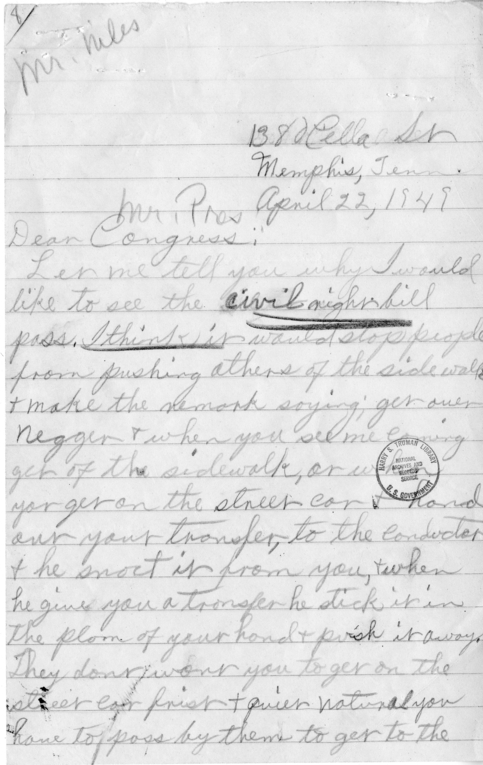 8/
Mr. Niles
138 Cella St
Memphis, Tenn.
April 22, 1949
Mr. Pres
Dear Congress;
Let me tell you why I would
like to see the civil right bill
pass. I think it would stop people
from pushing others of the sidewalk
+ make the remark saying; get over
Negger + when you see me coming
get of the sidewalk, or when
you get on the street car + hand
out your transfer, to the conductor
+ he snoct it from you, + when
he give you a transfer he stick it in
the plom of your hand + push it away.
They dont wont you to get on the
street car frist + quier natural you
have to pass by them to get to the
HARRY S. TRUMAN LIBRARY
NATIONAL
ARCHIVES AND
RECORDS
SERVICE
U.S. GOVERNMENT